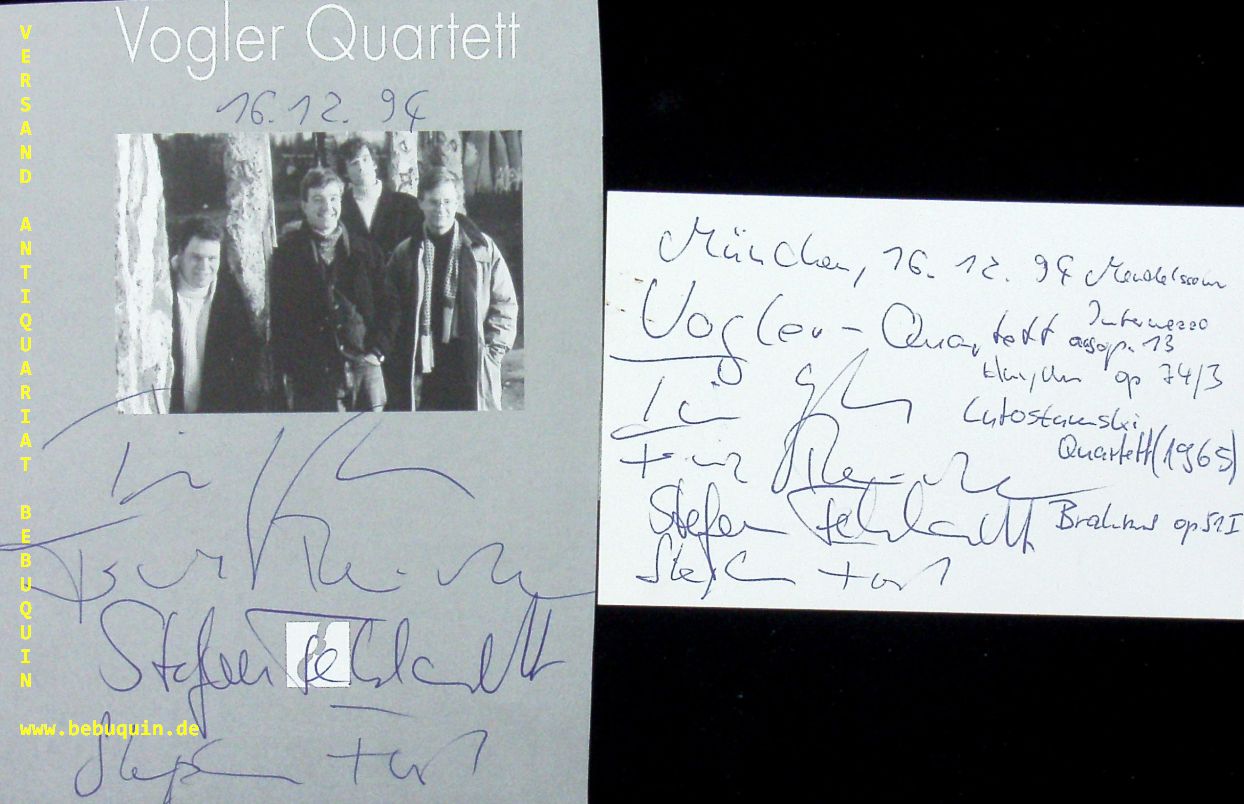 VERSAND ANTIQUARIAT BEBUQUIN
www.bebuquin.de
Vogler Quartett
16.12.94
Tim
Frank
Stefan Fehlandt
Stephan Forck
München, 16.12.94 Mendelssohn
Vogler-Quartett Intermezzo
aus op. 13
op 74/3
Tim
Lutosławski
Quartett (1965)
Frank
Stefan Fehlandt Brahms op 51 I
Stephan Forck